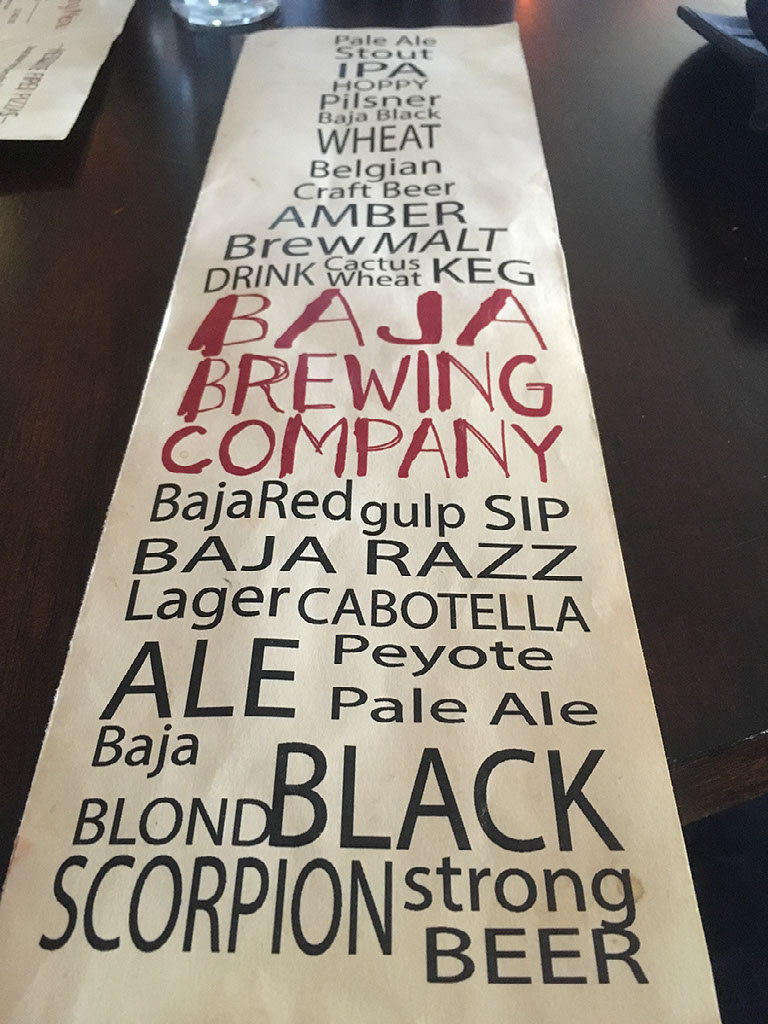 Pale Ale
Stout
IPA
HOPPY
Pilsner
Baja Black
WHEAT
Belgian
Craft Beer
AMBER
Brew MALT
DRINK Cactus Wheat KEG
BAJA
BREWING
COMPANY
BajaRed gulp SIP
BAJA RAZZ
Lager CABOTELLA
ALE Peyote
Pale Ale
Baja
BLOND BLACK
SCORPION strong
BEER